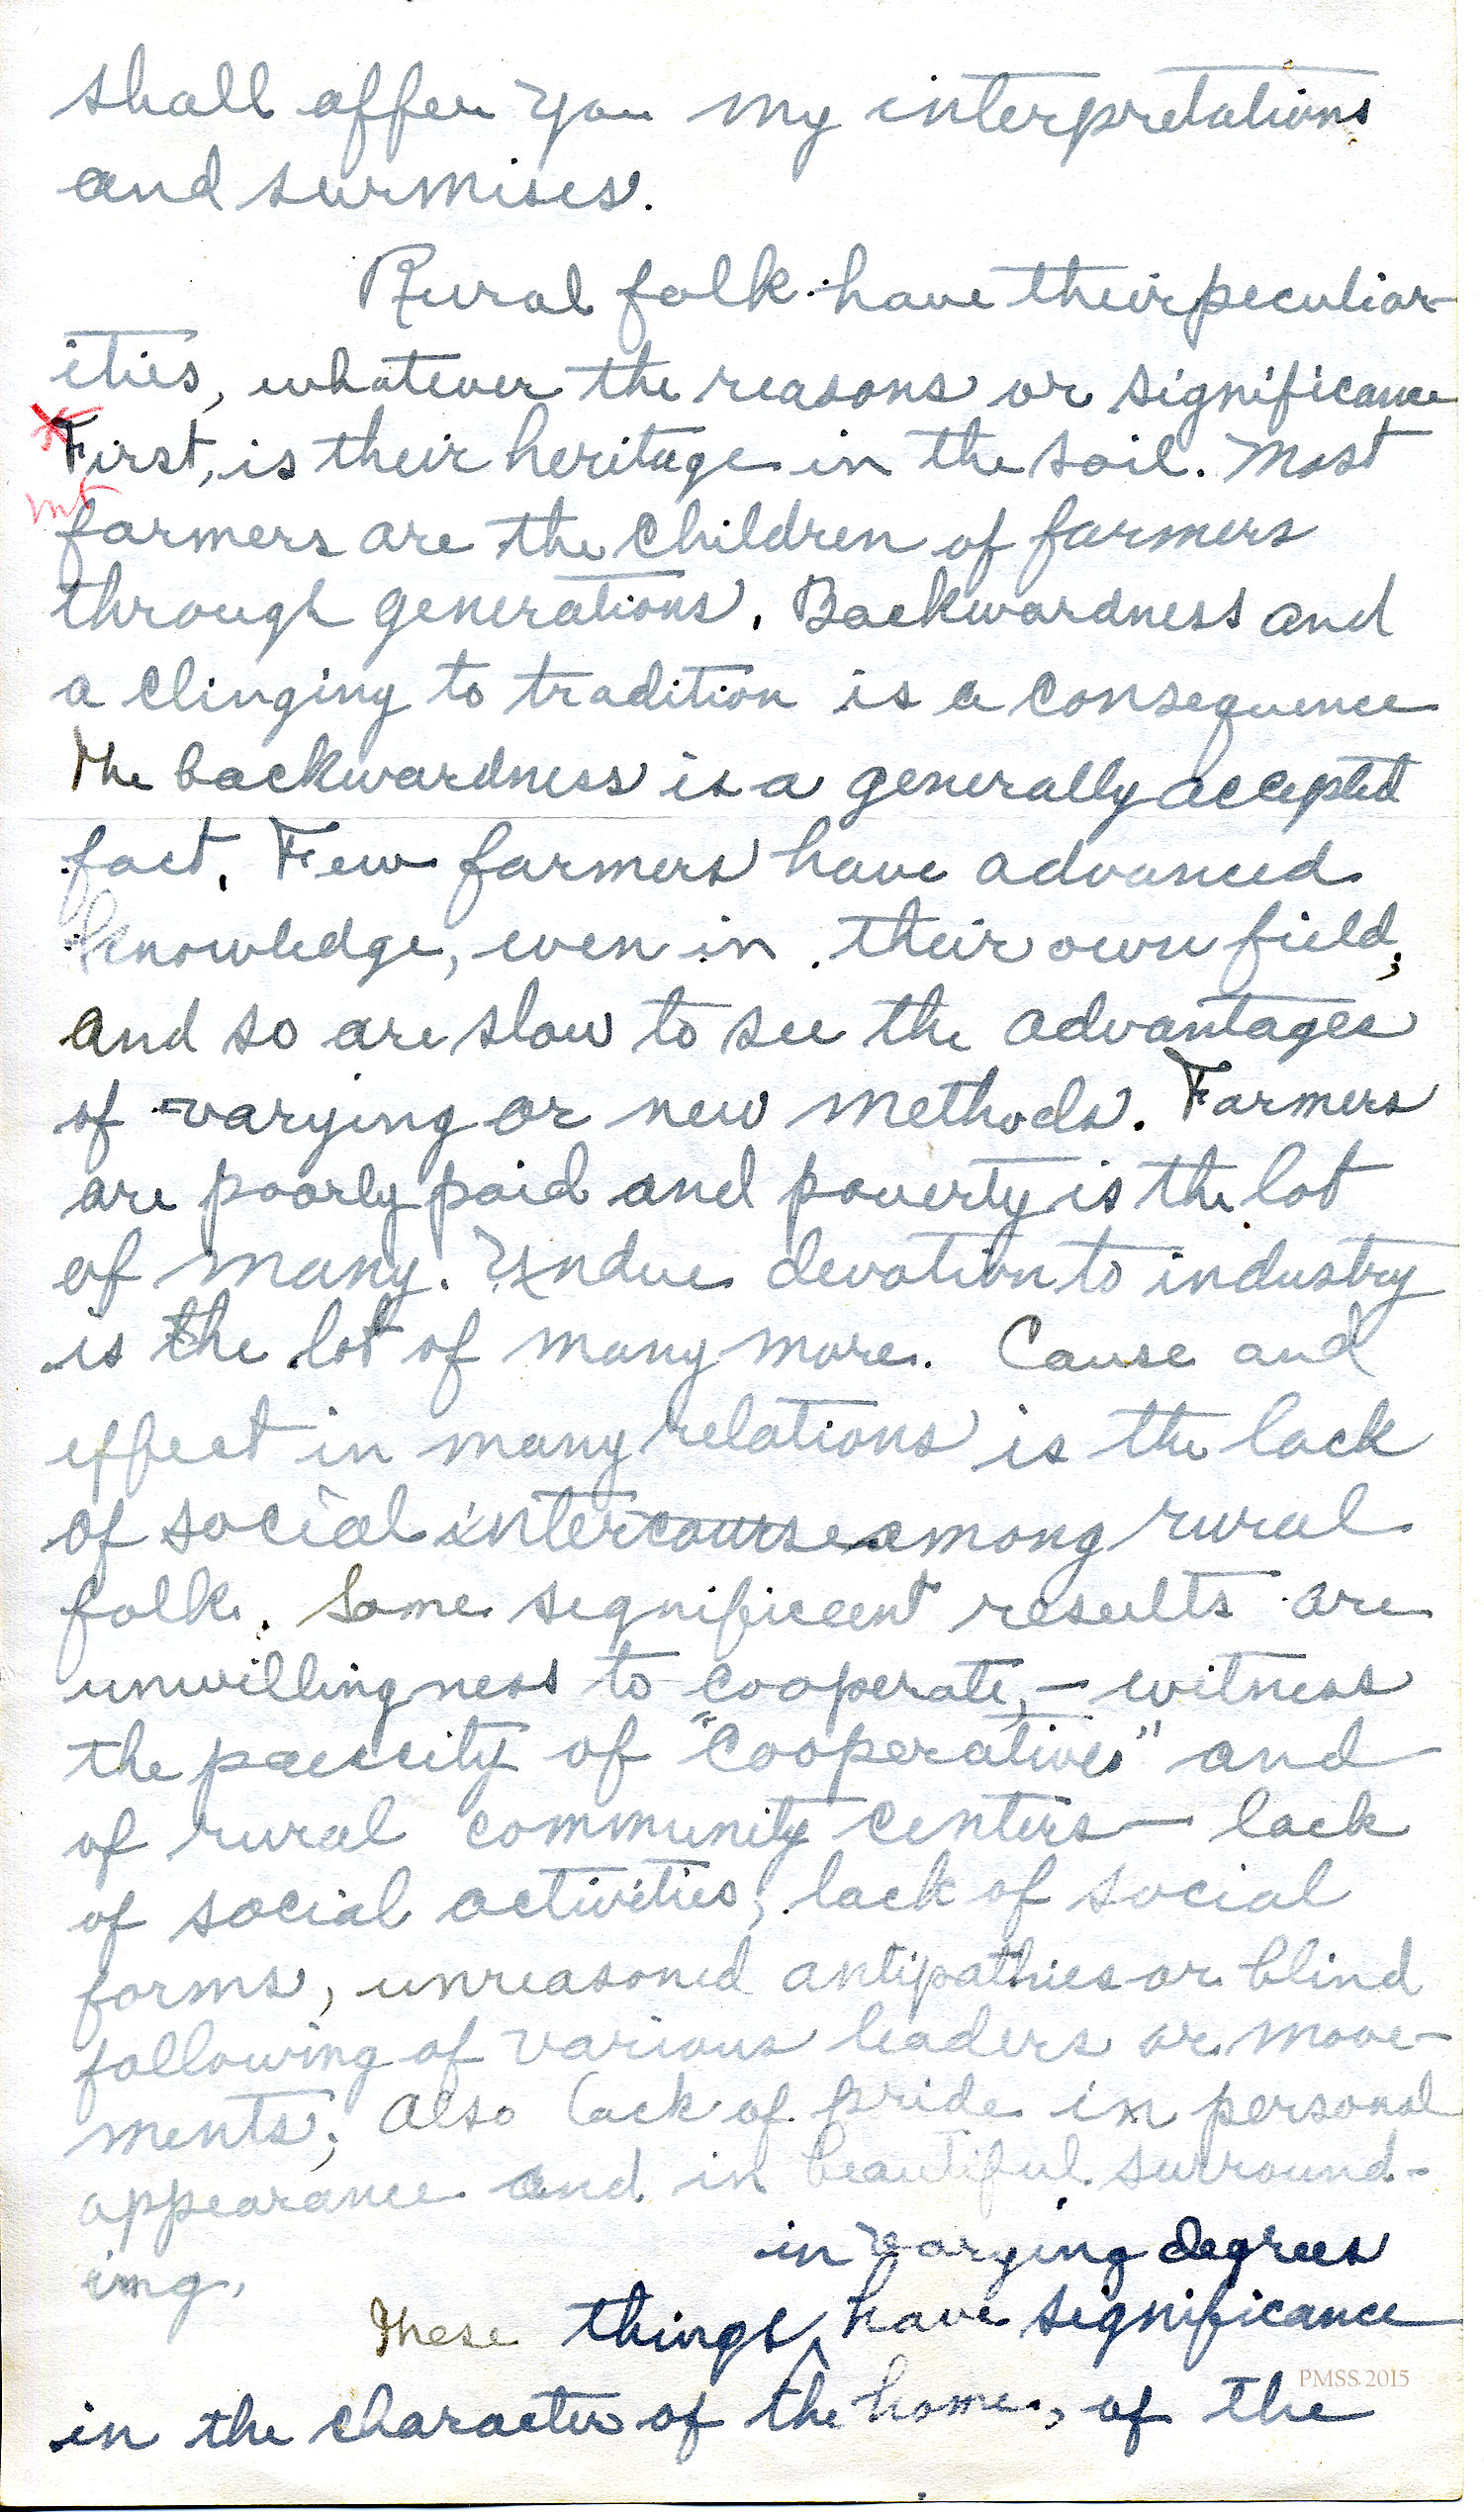 shall offer you my interpretations
and surmises.
Rural folk have their peculiar-
ities, whatever the reasons or significance
First, is their heritage in the soil. Most
farmers are the children of farmers
through generations. Backwardness and
a clinging to tradition is a consequence
The backwardness is a generally accepted
fact. Few farmers have advanced
knowledge, even in their own field;
and so are slow to see the advantages
of varying or new methods. Farmers
are poorly paid and poverty is the lot
of many. Undue devotion to industry
is the lot of many more. Cause and
effect in many relations is the lack
of social intercourse among rural
folk. Some significant results are
unwillingness to cooperate, - witness
the paucity of "cooperatives" and
of rural community centers — lack
of social activities, lack of social
forms, unreasoned antipathies or blind
following of various leaders or move-
ments; Also lack of pride in personal
appearance and in beautiful surround-
ing.
in varying degrees
These things ^ have significance
in the character of the home, of the
PMSS 2015